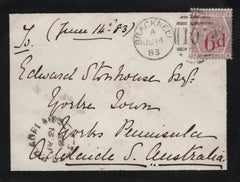 To (June 14th. 83)
BRACKNELL
A
JU 14
83
6d
Edward Stonhouse Esqr.
Yorke Town
Yorks Peninsula
Adelaide S. Australia